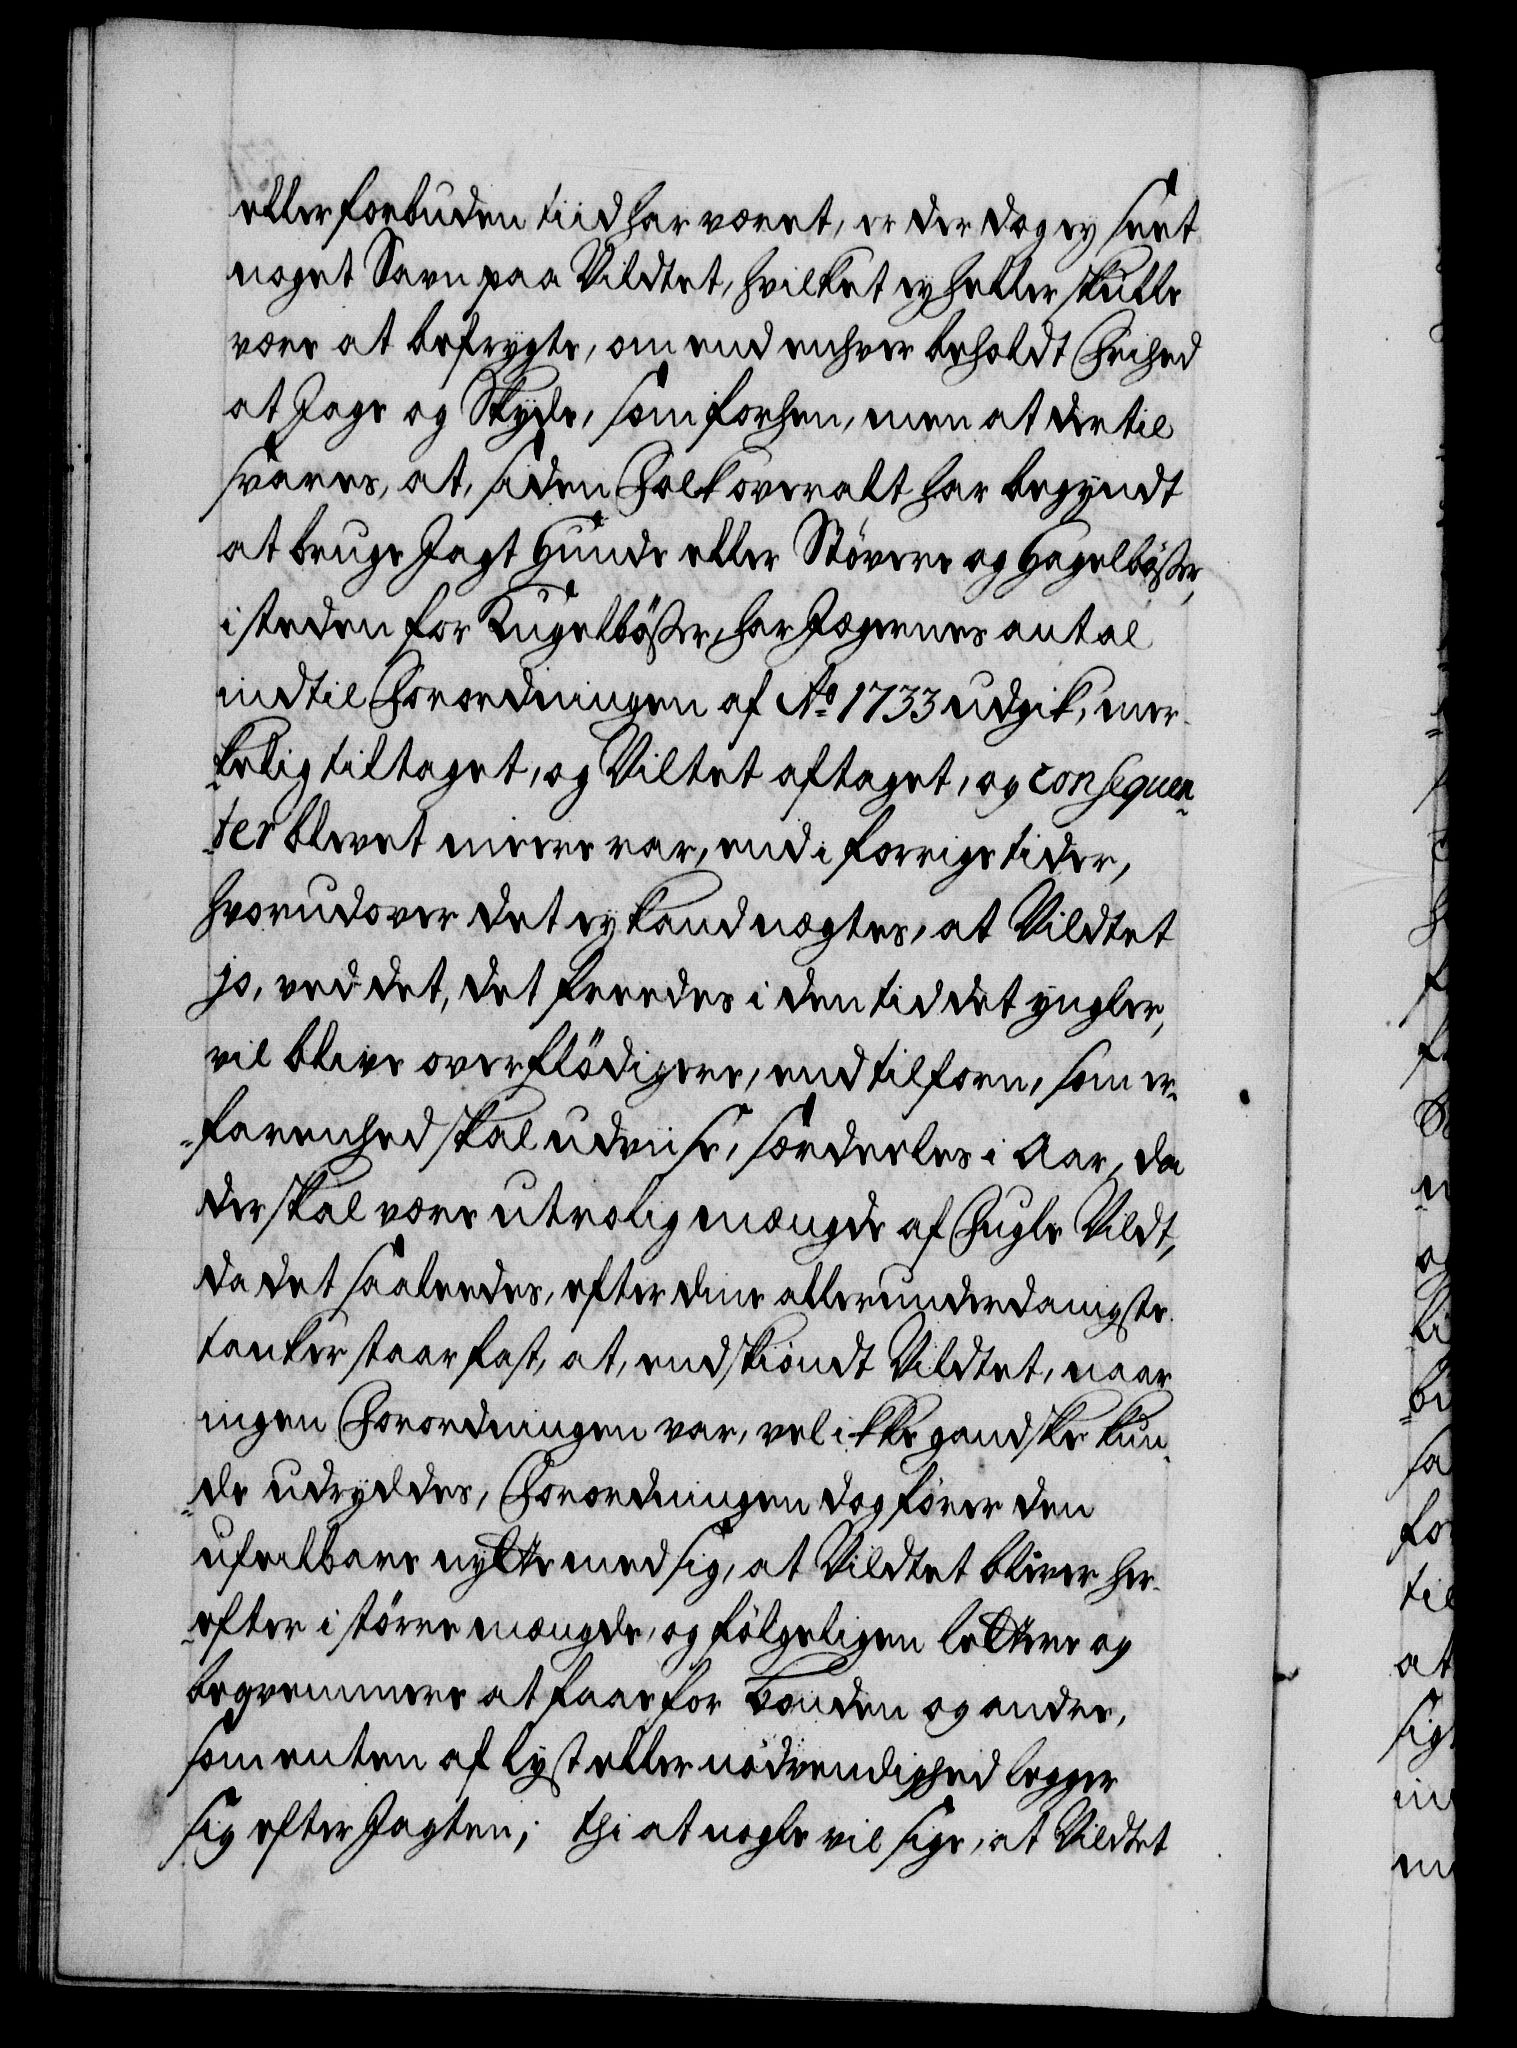 eller forbuden tiid har været, er der dog ey seet
noget Savn paa Vildtet, hvilket ey heller skulle
være at befrygte, om end enhver beholdt Frihed
at Jage og Skyde, som forhen, men at der til
svares, at, siden Folk overalt har begyndt
at bruge Jagt Hunde eller Stövere og Hagelbösser,
i steden for Kugelbösser, har Jægernes antal
indtil Forordningen af Ao 1733 udgik, mer-
-kelig tiltaget, og Viltet aftaget, og conseqven-
-ter blevet meere rar, end i forrige tider,
hvorudover det ey kand nægtes, at Vildtet
jo, ved det, det freedes i den tid det yngler,
vil blive overflödigere, end tilforn, som er-
-farenhed skal udviise, særdeeles i Aar, da
der skal være utrolig mængde af Fugle Vildt,
da det saaleedes, efter dine allerunderdanigste
tanker staar fast, at, endskiöndt Vildtet, naar
ingen Forordningen var, vel ikke gandske kun-
-de udryddes, Forordningen dog förer den
ufeilbare nytte med sig, at Vildtet bliver her-
-efter i större mængde, og fölgeligen lettere og
beqvemmere at faae for bonden og andre,
som enten af lyst eller nödvendighed legger
sig efter Jagten; thi at nogle vil sige, at Vildtet